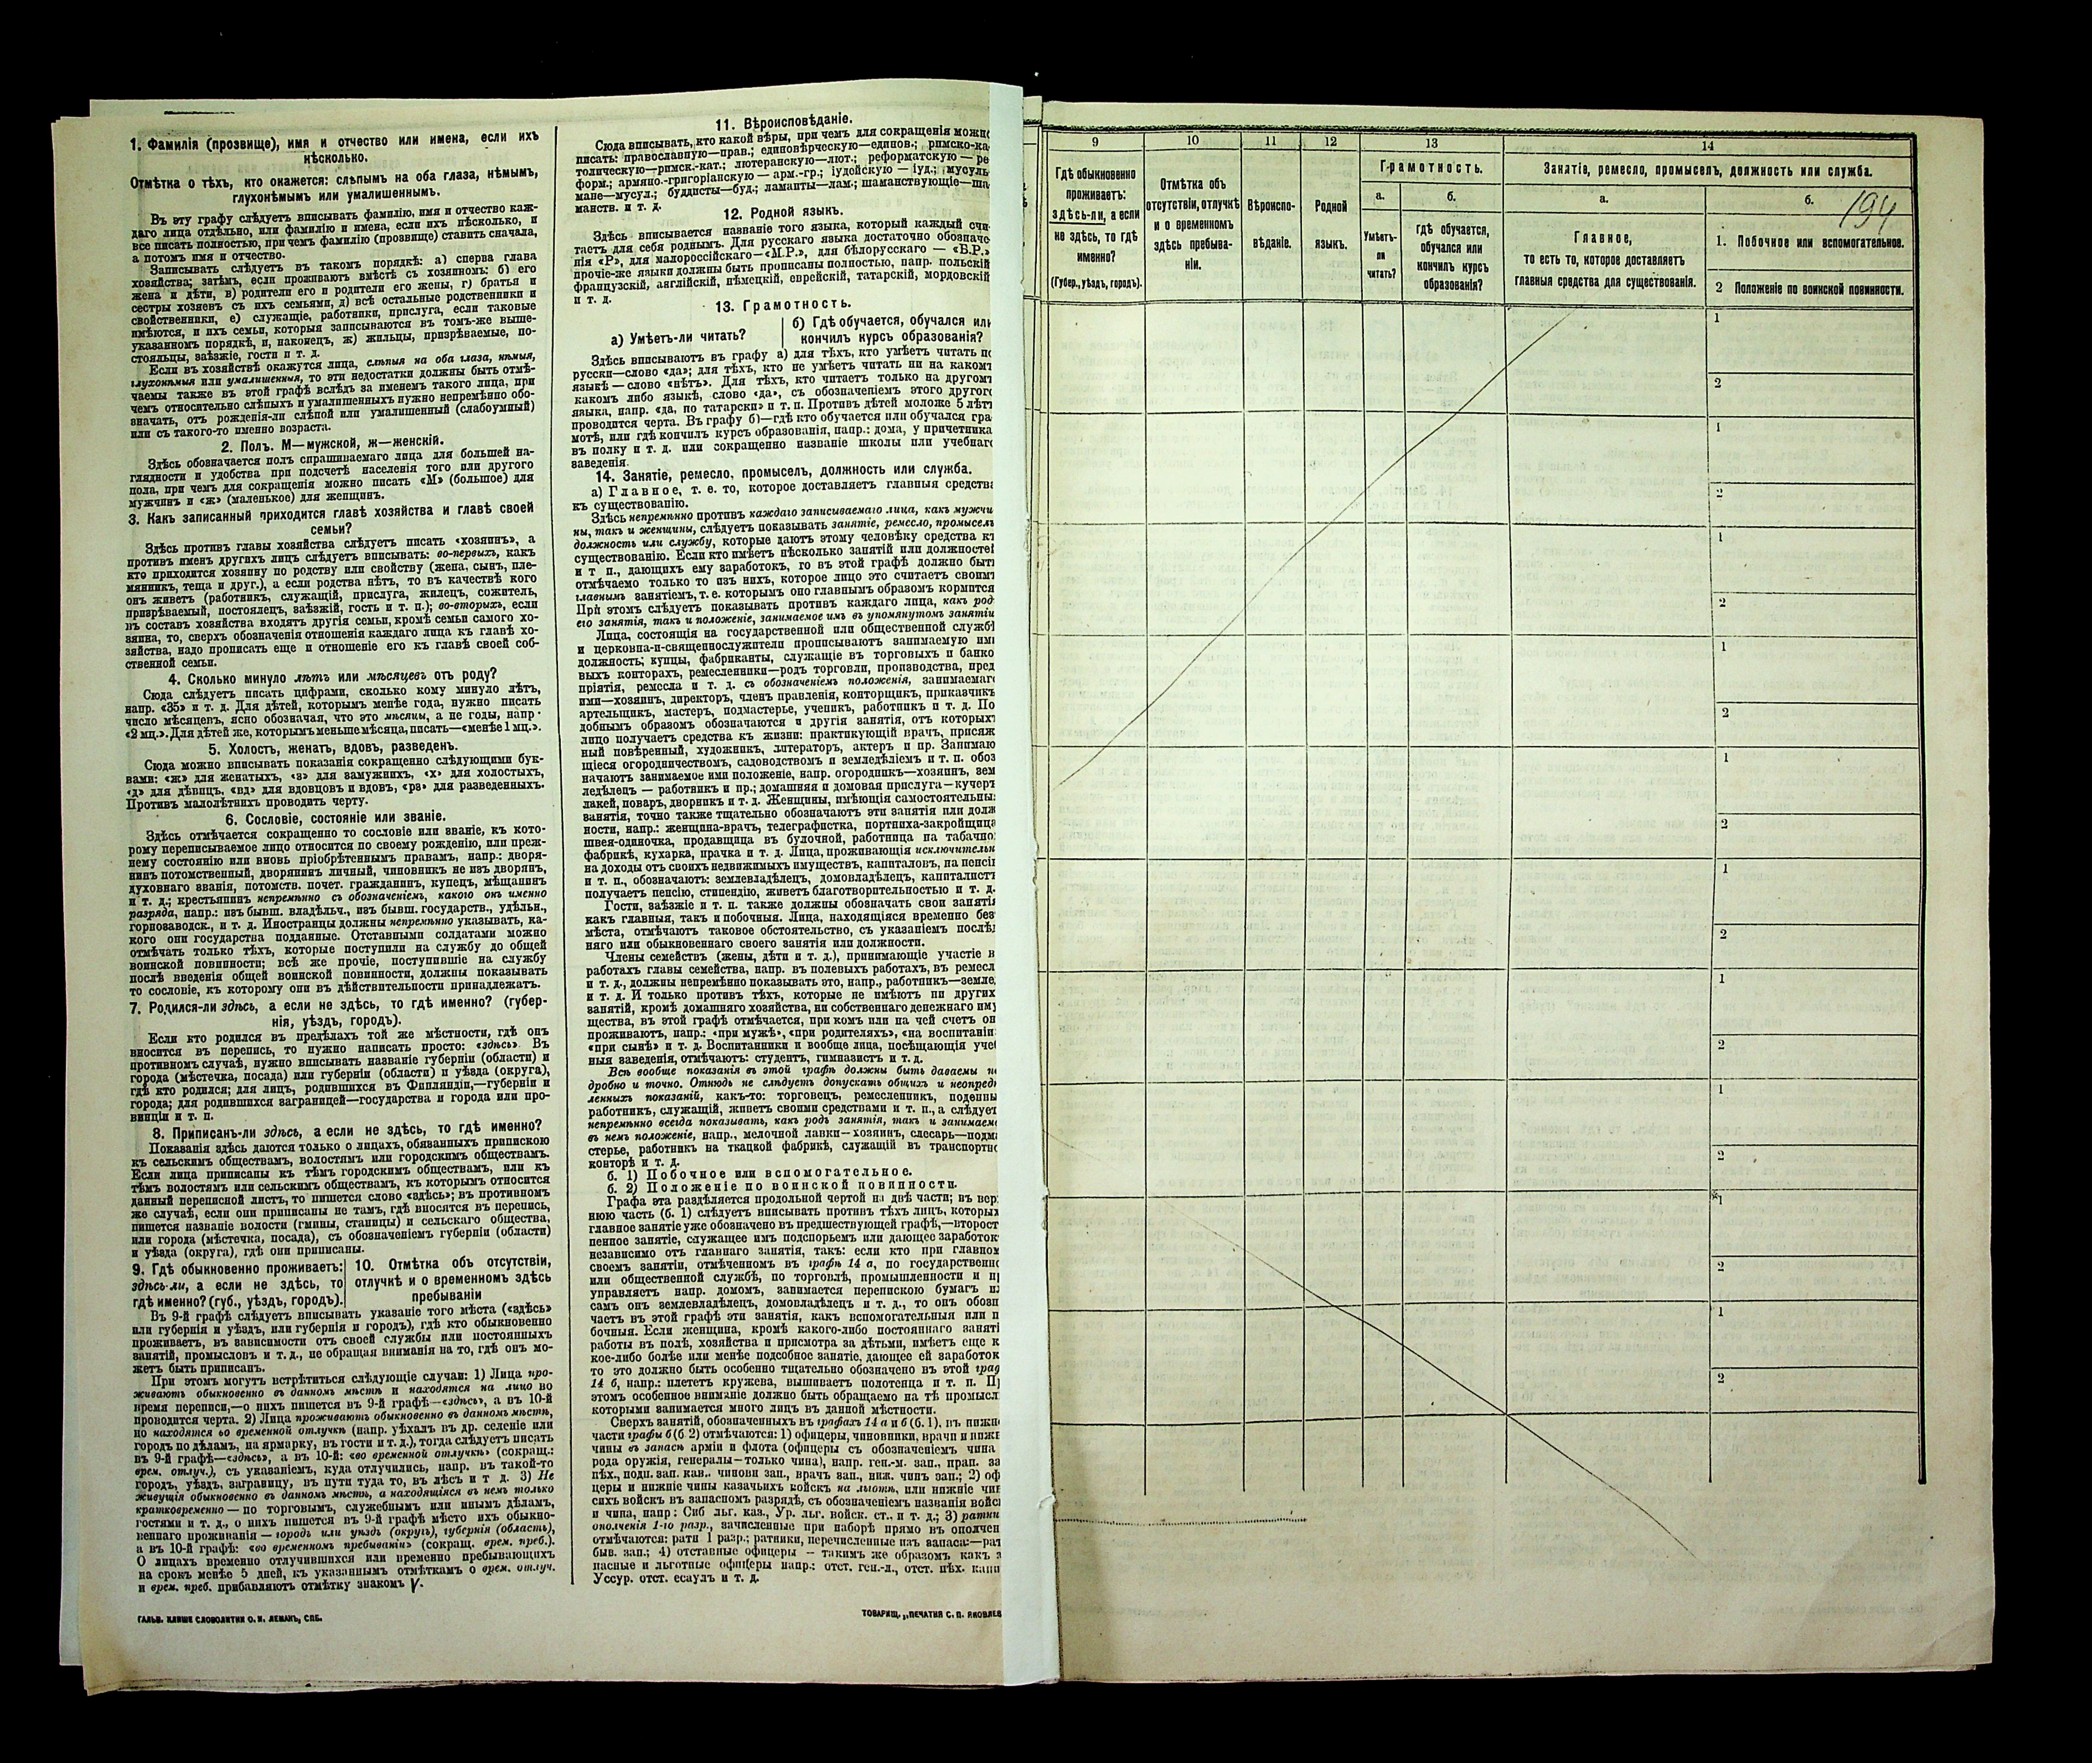 1. Фамилія (прозвище), имя и отчество или имена, если ихъ
нѣсколько.
Отмѣтка о тѣхъ, кто окажется: слѣпымъ на оба глаза, нѣмымъ,
глухонѣмымъ или умалишеннымъ.
Въ эту графу слѣдуетъ вписывать фамилію, имя и отчество каж-
даго лица отдѣльно, или фамилію и имена, если ихъ нѣсколько, и
все писать полностью, при чемъ фамилію (прозвище) ставить сначала,
а потомъ имя и отчество.
Записывать слѣдуетъ въ такомъ порядкѣ: а) сперва глава
хозяйства; затѣмъ, если проживаютъ вмѣстѣ съ хозяиномъ: б) его
жена и дѣти, в) родители его и родители его жены, г) братья и
сестры хозяевъ съ ихъ семьями, д) всѣ остальные родственники и
свойственники, е) служащіе, работники, прислуга, если таковые
имѣются, и ихъ семьи, которыя записываются въ томъ-же выше-
указанномъ порядкѣ, и, наконецъ, ж) жильцы, призрѣваемые, по-
стояльцы, заѣзжіе, гости и т. д.
Если въ хозяйствѣ окажутся лица, слѣпыя на оба глаза, нѣмыя,
глухонѣмыя или умалишенныя, то эти недостатки должны быть отмѣ-
чаемы также въ этой графѣ вслѣдъ за именемъ такого лица, при
чемъ относительно слѣпыхъ и умалишенныхъ нужно непремѣнно обо-
значать, отъ рожденія-ли слѣпой или умалишенный (слабоумный)
или съ такого-то именно возраста.
2. Полъ. М—мужской, ж—женскій.
Здѣсь обозначается полъ спрашиваемаго лица для большей на-
глядности и удобства при подсчетѣ населенія того или другого
пола, при чемъ для сокращенія можно писать «М» (большое) для
мужчинъ и «ж» (маленькое) для женщинъ.
3. Какъ записанный приходится главѣ хозяйства и главѣ своей
семьи?
Здѣсь противъ главы хозяйства слѣдуетъ писать «хозяинъ», а
противъ именъ другихъ лицъ слѣдуетъ вписывать: во-первыхъ, какъ
кто приходится хозяину по родству или свойству (жена, сынъ, пле-
мянникъ, теща и друг.), а если родства нѣтъ, то въ качествѣ кого
онъ живетъ (работникъ, служащій, прислуга, жилецъ, сожитель,
призрѣваемый, постоялецъ, заѣзжій, гость и т. п.); во-вторыхъ, если
въ составъ хозяйства входятъ другія семьи, кромѣ семьи самого хо-
зяина, то, сверхъ обозначенія отношенія каждаго лица къ главѣ хо-
зяйства, надо прописать еще и отношеніе его къ главѣ своей соб-
ственной семьи.
4. Сколько минуло лѣтъ или мѣсяцевъ отъ роду?
Сюда слѣдуетъ писать цифрами, сколько кому минуло лѣтъ,
напр. «35» и т. д. Для дѣтей, которымъ менѣе года, нужно писать
число мѣсяцевъ, ясно обозначая, что это мѣсяцы, а не годы, напр.
«2 мц.». Для дѣтей же, которымъ меньше мѣсяца, писать—«менѣе 1 мц.».
5. Холостъ, женатъ, вдовъ, разведенъ.
Сюда можно вписывать показанія сокращенно слѣдующими бук-
вами: «ж» для женатыхъ, «з» для замужнихъ, «х» для холостыхъ,
«д» для дѣвицъ, «вд» для вдовцовъ и вдовъ, «рз» для разведенныхъ.
Противъ малолѣтнихъ проводить черту.
6. Сословіе, состояніе или званіе.
Здѣсь отмѣчается сокращенно то сословіе или званіе, къ кото-
рому переписываемое лицо относится по своему рожденію, или преж-
нему состоянію или вновь пріобрѣтеннымъ правамъ, напр.: дворя-
нинъ потомственный, дворянинъ личный, чиновникъ не изъ дворянъ,
духовнаго званія, потомств. почет. гражданинъ, купецъ, мѣщанинъ
и т. д.; крестьянинъ непремѣнно съ обозначеніемъ, какого онъ именно
разряда, напр.: изъ бывш. владѣльч., изъ бывш. государств., удѣльн.,
горнозаводск., и т. д. Иностранцы должны непремѣнно указывать, ка-
кого они государства подданные. Отставными солдатами можно
отмѣчать только тѣхъ, которые поступили на службу до общей
воинской повинности; всѣ же прочіе, поступившіе на службу
послѣ введенія общей воинской повинности, должны показывать
то сословіе, къ которому они въ дѣйствительности принадлежатъ.
7. Родился-ли здѣсь, а если не здѣсь, то гдѣ именно? (губер-
нія, уѣздъ, городъ).
Если кто родился въ предѣлахъ той же мѣстности, гдѣ онъ
вносится въ перепись, то нужно написать просто: «здѣсь». Въ
противномъ случаѣ, нужно вписывать названіе губерніи (области) и
города (мѣстечка, посада) или губерніи (области) и уѣзда (округа),
гдѣ кто родился; для лицъ, родившихся въ Финляндіи,—губерніи и
города; для родившихся заграницей—государства и города или про-
винціи и т. п.
8. Приписанъ-ли здѣсь, а если не здѣсь, то гдѣ именно?
Показанія здѣсь даются только о лицахъ, обязанныхъ припискою
къ сельскимъ обществамъ, волостямъ или городскимъ обществамъ.
Если лица приписаны къ тѣмъ городскимъ обществамъ, или къ
тѣмъ волостямъ или сельскимъ обществамъ, къ которымъ относится
данный переписной листъ, то пишется слово «здѣсь»; въ противномъ
же случаѣ, если они приписаны не тамъ, гдѣ вносятся въ перепись,
пишется названіе волости (гмины, станицы) и сельскаго общества,
или города (мѣстечка, посада), съ обозначеніемъ губерніи (области)
и уѣзда (округа), гдѣ они приписаны.
9. Гдѣ обыкновенно проживаетъ:
здѣсь-ли, а если не здѣсь, то
гдѣ именно? (губ., уѣздъ, городъ).
10. Отмѣтка объ отсутствіи,
отлучкѣ и о временномъ здѣсь
пребываніи
Въ 9-й графѣ слѣдуетъ вписывать указаніе того мѣста («здѣсь»
или губернія и уѣздъ, или губернія и городъ), гдѣ кто обыкновенно
проживаетъ, въ зависимости отъ своей службы или постоянныхъ
занятій, промысловъ и т. д., не обращая вниманія на то, гдѣ онъ мо-
жетъ быть приписанъ.
При этомъ могутъ встрѣтиться слѣдующіе случаи: 1) Лица про-
живаютъ обыкновенно въ данномъ мѣстѣ и находятся на лицо во
время переписи,—о нихъ пишется въ 9-й графѣ—«здѣсь», а въ 10-й
проводится черта. 2) Лица проживаютъ обыкновенно въ данномъ мѣстѣ,
но находятся во временной отлучкѣ (напр. уѣхалъ въ др. селеніе или
городъ по дѣламъ, на ярмарку, въ гости и т. д.), тогда слѣдуетъ писать
въ 9-й графѣ—«здѣсь», а въ 10-й: «во временной отлучкѣ» (сокращ.:
врем. отлуч.), съ указаніемъ, куда отлучились, напр. въ такой-то
городъ, уѣздъ, заграницу, въ пути туда то, въ лѣсъ и т д. 3) Не
живущія обыкновенно въ данномъ мѣстѣ, а находящіяся въ немъ только
кратковременно — по торговымъ, служебнымъ или инымъ дѣламъ,
гостями и т. д., о нихъ пишется въ 9-й графѣ мѣсто ихъ обыкно-
веннаго проживанія — городъ или уѣздъ (округъ), губернія (область),
а въ 10-й графѣ: «во временномъ пребываніи» (сокращ. врем. преб.).
О лицахъ временно отлучившихся или временно пребывающихъ
на срокъ менѣе 5 дней, къ указаннымъ отмѣткамъ о врем. отлуч.
и врем. преб. прибавляютъ отмѣтку знакомъ V.
ГАЛЬВ. КЛИШЕ СЛОВОЛИТНИ О. И. ЛЕМАНЪ, СПБ.
11. Вѣроисповѣданіе.
Сюда вписывать, кто какой вѣры, при чемъ для сокращенія можно
писать: православную—прав.; единовѣрческую—единов.; римско-ка-
толическую—римск.-кат.; лютеранскую—лют.; реформатскую — ре
форм.; армяно-григоріанскую — арм.-гр.; іудейскую — іуд.; мусуль
мане—мусул.; буддисты—буд.; ламаиты—лам.; шаманствующіе—ша
манств. и т. д.
12. Родной языкъ.
Здѣсь вписывается названіе того языка, который каждый счи
таетъ для себя роднымъ. Для русскаго языка достаточно обозначе
нія «Р», для малороссійскаго—«М.Р.», для бѣлорусскаго — «Б.Р.»
прочіе-же языки должны быть прописаны полностью, напр. польскій
французскій, англійскій, нѣмецкій, еврейскій, татарскій, мордовскій
и т. д.
13. Грамотность.
а) Умѣетъ-ли читать?
б) Гдѣ обучается, обучался или
кончилъ курсъ образованія?
Здѣсь вписываютъ въ графу а) для тѣхъ, кто умѣетъ читать по
русски—слово «да»; для тѣхъ, кто не умѣетъ читать ни на какомъ
языкѣ — слово «нѣтъ». Для тѣхъ, кто читаетъ только на другомъ
какомъ либо языкѣ, слово «да», съ обозначеніемъ этого другого
языка, напр. «да, по татарски» и т. п. Противъ дѣтей моложе 5 лѣтъ
проводится черта. Въ графу б)—гдѣ кто обучается или обучался гра
мотѣ, или гдѣ кончилъ курсъ образованія, напр.: дома, у причетника
въ полку и т. д. или сокращенно названіе школы или учебнаго
заведенія.
14. Занятіе, ремесло, промыселъ, должность или служба.
а) Главное, т. е. то, которое доставляетъ главныя средства
къ существованію.
Здѣсь непремѣнно противъ каждаго записываемаго лица, какъ мужчи
ны, такъ и женщины, слѣдуетъ показывать занятіе, ремесло, промыселъ
должность или службу, которые даютъ этому человѣку средства къ
существованію. Если кто имѣетъ нѣсколько занятій или должностей
и т п., дающихъ ему заработокъ, то въ этой графѣ должно быть
отмѣчаемо только то изъ нихъ, которое лицо это считаетъ своимъ
главнымъ занятіемъ, т. е. которымъ оно главнымъ образомъ кормится
При этомъ слѣдуетъ показывать противъ каждаго лица, какъ род
его занятія, такъ и положеніе, занимаемое имъ въ упомянутомъ занятіи
Лица, состоящія на государственной или общественной службѣ
и церковна-и-священнослужители прописываютъ занимаемую ими
должность; купцы, фабриканты, служащіе въ торговыхъ и банко
выхъ конторахъ, ремесленники—родъ торговли, производства, пред
пріятія, ремесла и т. д. съ обозначеніемъ положенія, занимаемаго
ими—хозяинъ, директоръ, членъ правленія, конторщикъ, приказчикъ
артельщикъ, мастеръ, подмастерье, ученикъ, работникъ и т. д. По
добнымъ образомъ обозначаются и другія занятія, отъ которыхъ
лицо получаетъ средства къ жизни: практикующій врачъ, присяж
ный повѣренный, художникъ, литераторъ, актеръ и пр. Занимаю
щіеся огородничествомъ, садоводствомъ и земледѣліемъ и т. п. обоз
начаютъ занимаемое ими положеніе, напр. огородникъ—хозяинъ, зем
ледѣлецъ — работникъ и пр.; домашняя и домовая прислуга—кучеръ
лакей, поваръ, дворникъ и т. д. Женщины, имѣющія самостоятельны
занятія, точно также тщательно обозначаютъ эти занятія или долж
ности, напр.: женщина-врачъ, телеграфистка, портниха-закройщица
швея-одиночка, продавщица въ булочной, работница на табачно
фабрикѣ, кухарка, прачка и т. д. Лица, проживающія исключительн
на доходы отъ своихъ недвижимыхъ имуществъ, капиталовъ, на пенсіи
и т. п., обозначаютъ: землевладѣлецъ, домовладѣлецъ, капиталистъ
получаетъ пенсію, стипендію, живетъ благотворительностью и т. д.
Гости, заѣзжіе и т. п. также должны обозначать свои занятія
какъ главныя, такъ и побочныя. Лица, находящіяся временно без
мѣста, отмѣчаютъ таковое обстоятельство, съ указаніемъ послѣд
няго или обыкновеннаго своего занятія или должности.
Члены семействъ (жены, дѣти и т. д.), принимающіе участіе в
работахъ главы семейства, напр. въ полевыхъ работахъ, въ ремесл
и т. д., должны непремѣнно показывать это, напр., работникъ—земле
и т. д. И только противъ тѣхъ, которые не имѣютъ ни других
занятій, кромѣ домашняго хозяйства, ни собственнаго денежнаго иму
щества, въ этой графѣ отмѣчается, при комъ или на чей счетъ он
проживаютъ, напр.: «при мужѣ», «при родителяхъ», «на воспитаніи
«при сынѣ» и т. д. Воспитанники и вообще лица, посѣщающія уче
ныя заведенія, отмѣчаютъ: студентъ, гимназистъ и т. д.
Всѣ вообще показанія въ этой графѣ должны быть даваемы по
дробно и точно. Отнюдь не слѣдуетъ допускать общихъ и неопредѣ
ленныхъ показаній, какъ-то: торговецъ, ремесленникъ, поденны
работникъ, служащій, живетъ своими средствами и т. п., а слѣдует
непремѣнно всегда показывать, какъ родъ занятія, такъ и занимаем
въ немъ положеніе, напр., мелочной лавки—хозяинъ, слесарь—подм
стерье, работникъ на ткацкой фабрикѣ, служащій въ транспортно
конторѣ и т. д.
б. 1) Побочное или вспомогательное.
б. 2) Положеніе по воинской повинности.
Графа эта раздѣляется продольной чертой на двѣ части; въ вер
нюю часть (б. 1) слѣдуетъ вписывать противъ тѣхъ лицъ, которых
главное занятіе уже обозначено въ предшествующей графѣ,—второст
пенное занятіе, служащее имъ подспорьемъ или дающее заработок
независимо отъ главнаго занятія, такъ: если кто при главном
своемъ занятіи, отмѣченномъ въ графѣ 14 а, по государственно
или общественной службѣ, по торговлѣ, промышленности и п
управляетъ напр. домомъ, занимается перепискою бумагъ ил
самъ онъ землевладѣлецъ, домовладѣлецъ и т. д., то онъ обозн
чаетъ въ этой графѣ эти занятія, какъ вспомогательныя или п
бочныя. Если женщина, кромѣ какого-либо постояннаго заняті
работы въ полѣ, хозяйства и присмотра за дѣтьми, имѣетъ еще к
кое-либо болѣе или менѣе подсобное занятіе, дающее ей заработок
то это должно быть особенно тщательно обозначено въ этой граф
14 б, напр.: плететъ кружева, вышиваетъ полотенца и т. п. П
этомъ особенное вниманіе должно быть обращаемо на тѣ промысл
которыми занимается много лицъ въ данной мѣстности.
Сверхъ занятій, обозначенныхъ въ графахъ 14 а и б (б. 1), въ нижн
части графы б (б 2) отмѣчаются: 1) офицеры, чиновники, врачи и нижн
чины въ запасѣ арміи и флота (офицеры съ обозначеніемъ чина
рода оружія, генералы—только чина), напр. ген.-м. зап., прап. за
пѣх., подп. зап. кав.. чиновн зап., врачъ зап., ниж. чинъ зап.; 2) оф
церы и нижніе чины казачьихъ войскъ на льготѣ, или нижніе чин
сихъ войскъ въ запасномъ разрядѣ, съ обозначеніемъ названія войск
и чина, напр: Сиб льг. каз., Ур. льг. войск. ст., и т. д.; 3) ратни
ополченія 1-го разр., зачисленные при наборѣ прямо въ ополчен
отмѣчаются: ратн 1 разр.; ратники, перечисленные изъ запаса:—рат
быв. зап.; 4) отставные офицеры — такимъ же образомъ какъ з
пасные и льготные офицеры напр.: отст. ген.-л., отст. пѣх. капи
Уссур. отст. есаулъ и т. д.
ТОВАРИЩ. „ПЕЧАТНЯ С. П. ЯКОВЛЕВ
194
9 10 11 12 13 14
Гдѣ обыкновенно
проживаетъ:
здѣсь-ли, а если
не здѣсь, то гдѣ
именно?
(Губер., уѣздъ, городъ).
Отмѣтка объ
отсутствіи, отлучкѣ
и о временномъ
здѣсь пребыва-
ніи.
Вѣроиспо-
вѣданіе.
Родной
языкъ.
Грамотность.
а.
Умѣетъ-
ли
читать?
б.
гдѣ обучается,
обучался или
кончилъ курсъ
образованія?
Занятіе, ремесло, промыселъ, должность или служба.
а.
Главное,
то есть то, которое доставляетъ
главныя средства для существованія.
б.
1. Побочное или вспомогательное.
2 Положеніе по воинской повинности.
1
2
1
2
1
2
1
2
1
2
1
2
1
2
1
2
1
2
1
2